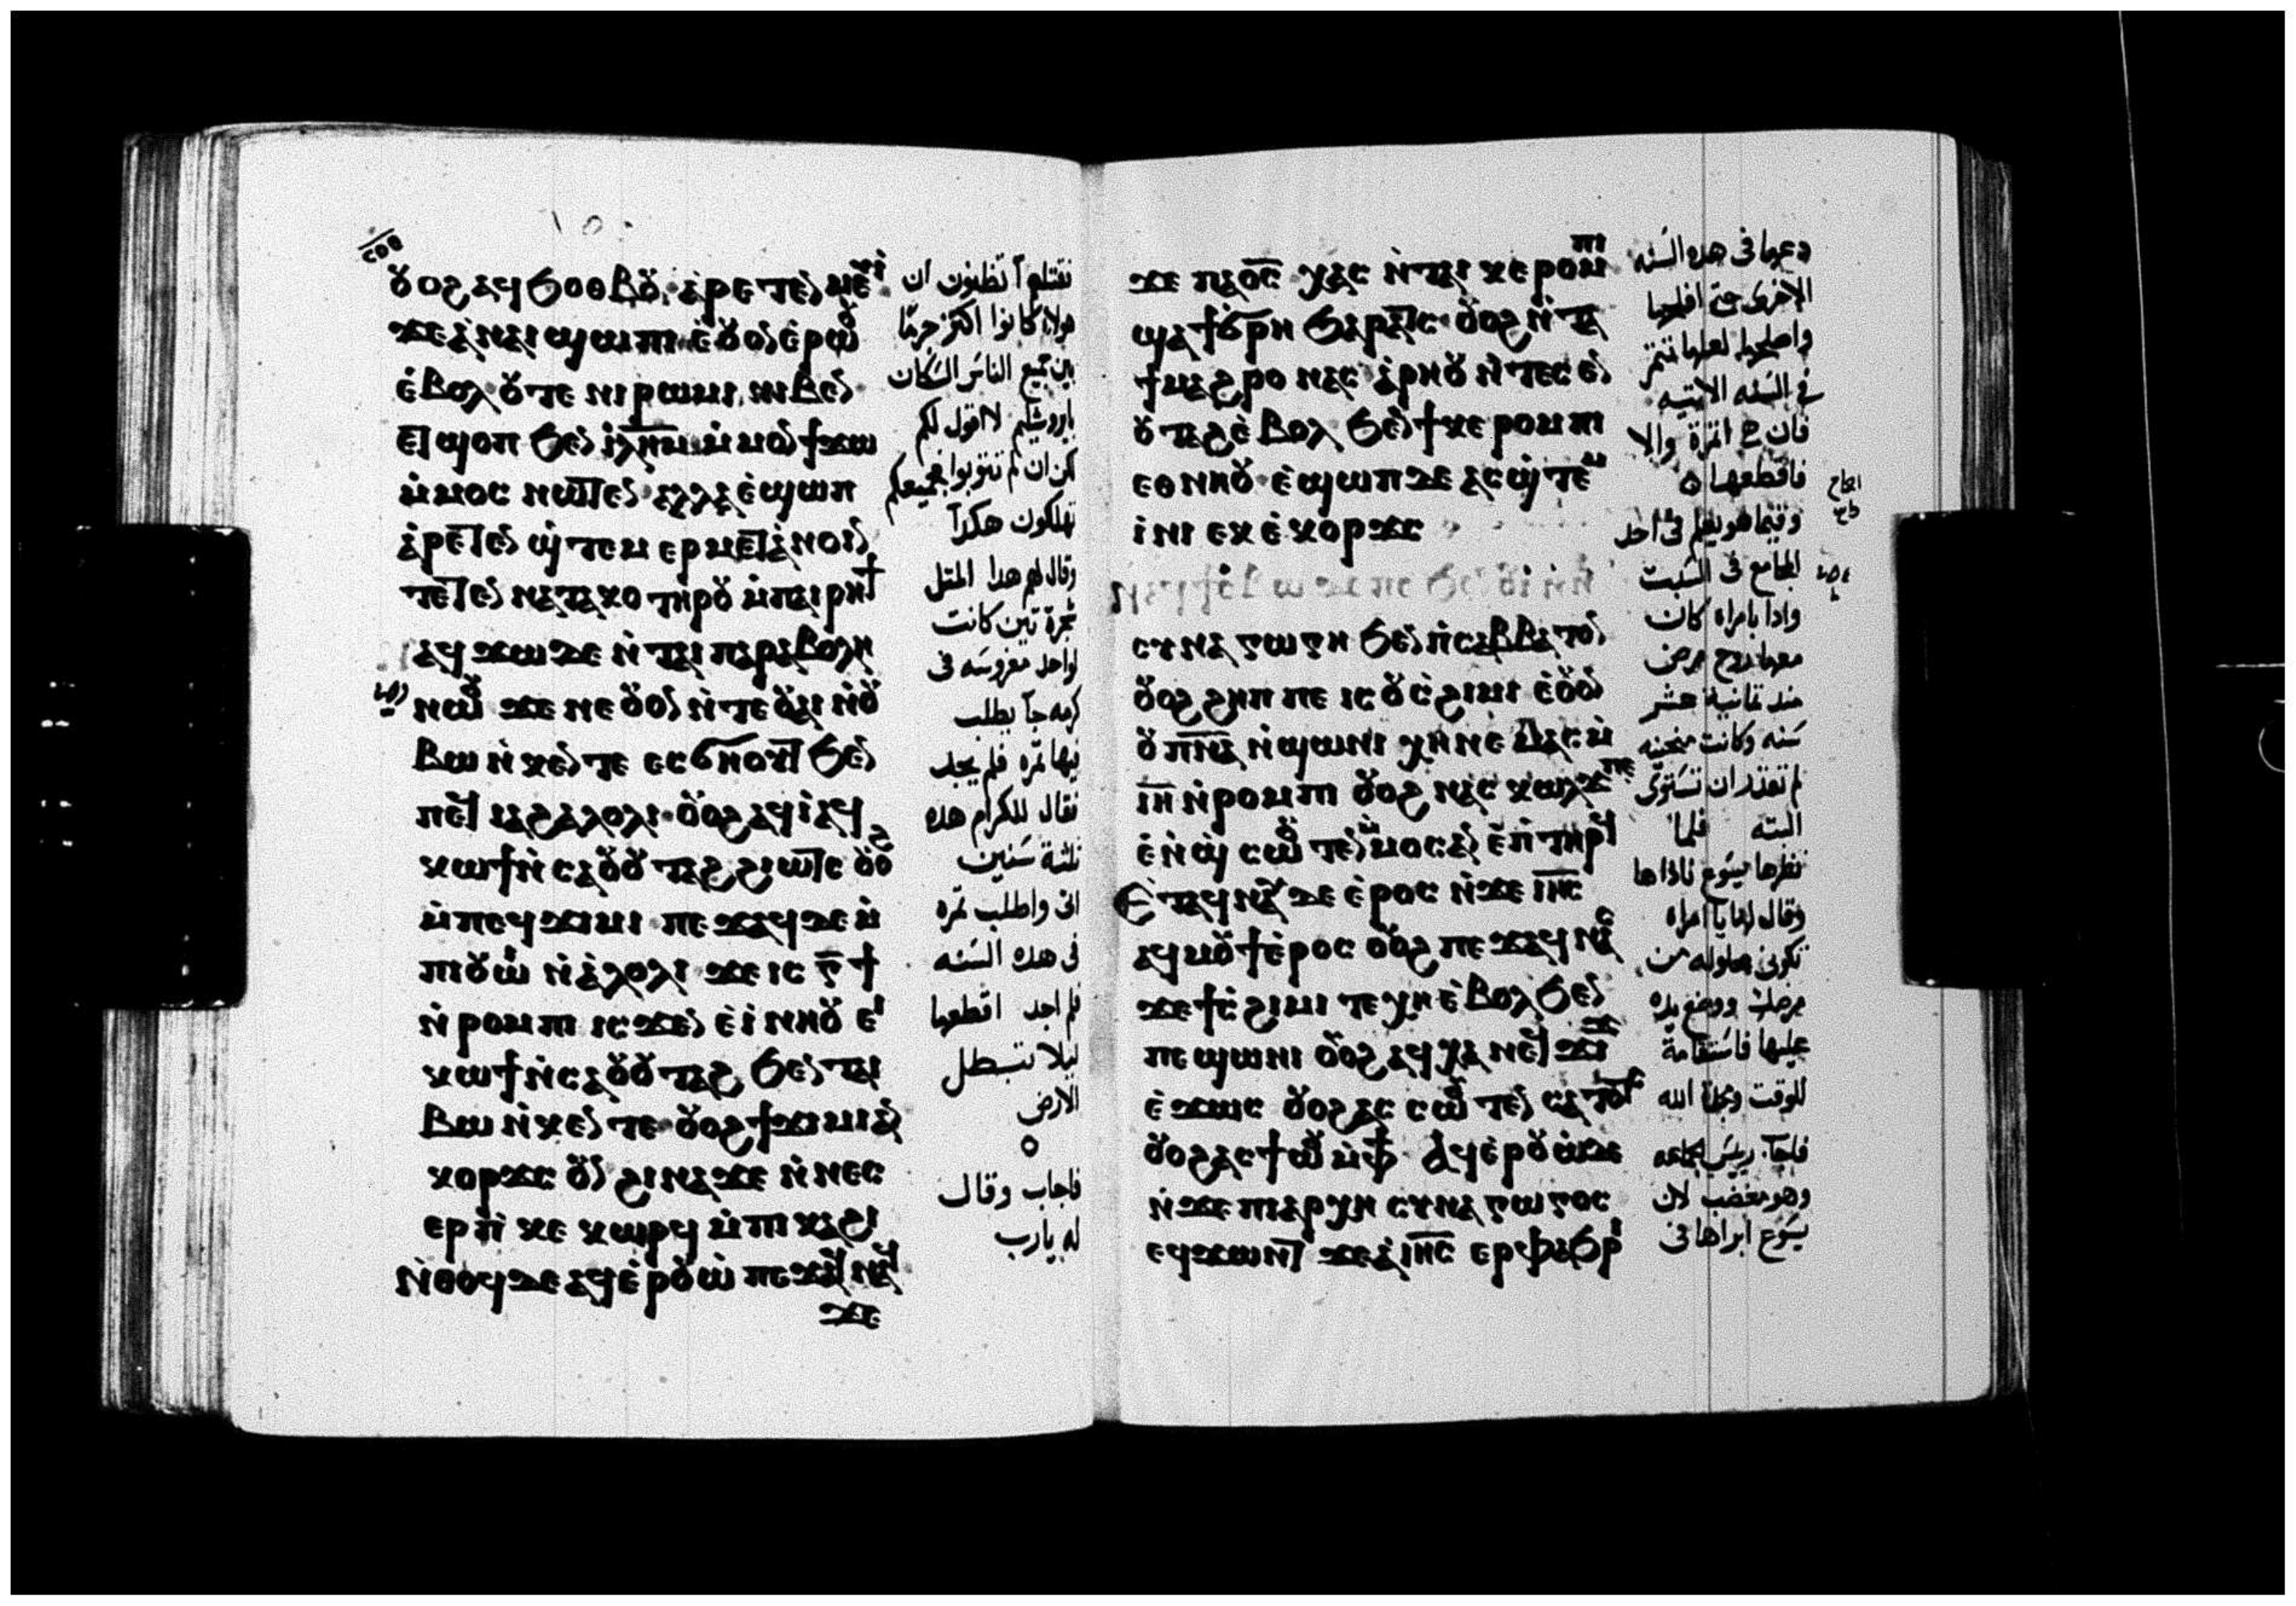 ⲟⲩⲟϩ ⲁϥϧⲟⲑⲃⲟⲩ ⲁⲣⲉⲧⲉⲛⲙⲉⲩⲓ
ϫⲉ ⲁ ⲛⲁⲓ ϣⲱⲡⲓ ⲉⲟⲩⲟⲛ ⲉⲣⲱⲟⲩ
ⲉⲃⲟⲗ ⲟⲩⲧⲉ ⲛⲓⲣⲱⲙⲓ ⲛⲓⲃⲉⲛ
ⲉⲧϣⲟⲡ ϧⲉⲛ ⲓⲗⲏⲙ ⲙⲙⲟⲛ ϯϫⲱ
ⲙⲙⲟⲥ ⲛⲱⲧⲉⲛ ⲁⲗⲗⲁ ⲉϣⲱⲡ
ⲁⲣⲉⲧⲉⲛϣⲧⲉⲙⲉⲣⲙⲉⲧⲁⲛⲟⲓⲛ
ⲧⲉⲧⲉⲛⲛⲁⲧⲁⲕⲟ ⲧⲏⲣⲟⲩ ⲙⲡⲁⲓⲣⲏϯ
ⲁϥϫⲱ ⲇⲉ ⲛⲧⲁⲓⲡⲁⲣⲁⲃⲟⲗⲏ
ⲛⲱⲟⲩ ϫⲉ ⲛⲉ ⲟⲩⲟⲛ ⲛⲧⲉ ⲟⲩⲁⲓ ⲛⲟⲩ
ⲃⲱ ⲛⲕⲉⲛⲧⲉ ⲉⲥϭⲛⲟⲩⲧ ϧⲉⲛ
ⲡⲉϥⲓⲁϩⲁⲗⲟⲗⲓ ⲟⲩⲟϩ ⲁϥⲓ ⲁϥ
ⲕⲱϯ ⲛⲥⲁ ⲟⲩⲟⲩⲧⲁϩ ϩⲓⲱⲧⲥ ⲟⲩⲟϩ
ⲙⲡⲉϥϫⲓⲙⲓ ⲡⲉϫⲁϥ ⲇⲉ ⲙ
ⲡⲓⲟⲩⲱⲓ ⲛⲁⲗⲟⲗⲓ ϫⲉ ⲓⲥ ⲅϯ
ⲛⲣⲟⲙⲡⲓ ⲓⲥϫⲉⲛ ⲉⲓⲛⲏⲟⲩ ⲉⲓ
ⲕⲱϯ ⲛⲥⲁ ⲟⲩⲟⲩⲧⲁϩ ϧⲉⲛ ⲧⲁⲓ
ⲃⲱ ⲛⲕⲉⲛⲧⲉ ⲟⲩⲟϩ ϯϫⲓⲙⲓ ⲁⲛ
ⲕⲟⲣϫⲥ ⲟⲩⲛ ϩⲓⲛⲁ ϫⲉ ⲛⲛⲉⲥ
ⲉⲣ ⲡⲓⲕⲉ ⲕⲱⲣϥ ⲙⲡⲓⲕⲁϩⲓ
ⲛⲑⲟϥ ⲇⲉ ⲁϥⲉⲣⲟⲩⲱ ⲡⲉϫⲁϥ ⲛⲁϥ
ϫⲉ
نقتلهم أتظنون ان
هولاء كانوا اكثر جرمًا
من جميع الناس السكان
باروشليم لا اقول لكم
لكن ان لم تتوبوا جميعكم
تهلكون هكذا
وقال لهم هدا المثل
شجرة تين كانت
لواحد مغروسه فى
كرمه جآ يطلب
فيها ثمره فلم يجد
فقال للكرام هده
ثلثة سنين
اتى واطلب ثمره
فى هده السنه
فلم اجد اقطعها
ليلا تبطل
الارض
فاجاب وقال
له يارب
ϫⲉ ⲡⲁⲟ̅ⲥ̅ ⲭⲁⲥ ⲛⲧⲁⲓⲕⲉⲣⲟⲙⲡⲓ
ϣⲁϯϭⲣⲏ ϧⲁⲣⲁⲧⲥ ⲟⲩⲟϩ ⲛⲧⲁ
ϯⲙⲁϩⲣⲟ ⲛⲁⲥ ⲁⲣⲏⲟⲩ ⲛⲧⲉⲥⲉⲛ
ⲟⲩⲧⲁϩ ⲉⲃⲟⲗ ϧⲉⲛ ϯⲕⲉⲣⲟⲙⲡⲓ
ⲉⲑⲛⲏⲟⲩ ⲉϣⲱⲡ ⲇⲉ ⲁⲥϣⲧⲉⲙ
ⲓⲛⲓ ⲉⲕⲉⲕⲟⲣϫⲥ
ⲥⲩⲛⲁⲅⲱⲅⲏ ϧⲉⲛ ⲛⲥⲁⲃⲃⲁⲧⲟⲛ
ⲟⲩⲟϩ ϩⲏⲡⲡⲉ ⲓⲥ ⲟⲩⲥϩⲓⲙⲓ ⲉⲟⲩⲟⲛ
ⲟⲩⲡ̅ⲛ̅ⲁ̅ ⲛϣⲱⲛⲓ ⲭⲏ ⲛⲉⲙⲁⲥ ⲙ
ⲓ̅ⲏ̅ ⲛⲣⲟⲙⲡⲓ ⲟⲩⲟϩ ⲛⲁⲥⲕⲱⲗϫ ⲡⲉ
ⲉⲛϣ ⲥⲱⲟⲩⲧⲉⲛ ⲙⲙⲟⲥ ⲁⲛ ⲉⲡⲧⲏⲣϥ
Ⲉⲧⲁϥⲛⲁⲩ ⲇⲉ ⲉⲣⲟⲥ ⲛϫⲉ ⲓⲏ̅ⲥ̅
ⲁϥⲙⲟⲩϯ ⲉⲣⲟⲥ ⲟⲩⲟϩ ⲡⲉϫⲁϥ ⲛⲁⲥ
ϫⲉ ϯⲥϩⲓⲙⲓ ⲧⲉⲭⲏ ⲉⲃⲟⲗ ϧⲉⲛ
ⲡⲉϣⲱⲛⲓ ⲟⲩⲟϩ ⲁϥⲭⲁ ⲛⲉϥϫⲓϫ
ⲉϫⲱⲥ ⲟⲩⲟϩ ⲁⲥⲥⲱⲟⲩⲧⲉⲛ ⲥⲁⲧⲟⲧⲥ
ⲟⲩⲟϩ ⲁⲥϯⲱⲟⲩ ⲙⲫϯ Ⲁϥⲉⲣⲟⲩⲱ ⲇⲉ
ⲛϫⲉ ⲡⲓⲁⲣⲭⲏⲥⲩⲛⲁⲅⲱⲅⲟⲥ
ⲉϥϫⲱⲛⲧ ϫⲉ ⲁ ⲓⲏ̅ⲥ̅ ⲉⲣⲫⲁϧⲣⲓ
دعها فى هده السنه
الاخرى حتى افلحها
واصلحها لعلها تثمر
فى السنه الاتيه
فان الثمرة والا
فاقطعها
وفيما هو يعلم فى احد
المجامع فى السبت
واذا بامراه كان
معها روح مرض
مند ثمانية عشر
سنه وكانت منحنيه
لم تقدر ان تستوى
البته فلما
نظرها يسوع ناداها
وقال لها يا امراه
تكونى محلوله من
مرضك ووضع يده
عليها فاستقامة
للوقت ومجدة الله
فاجاب رييس الجماعه
وهو مغضب لان
يسوع ابراها فى